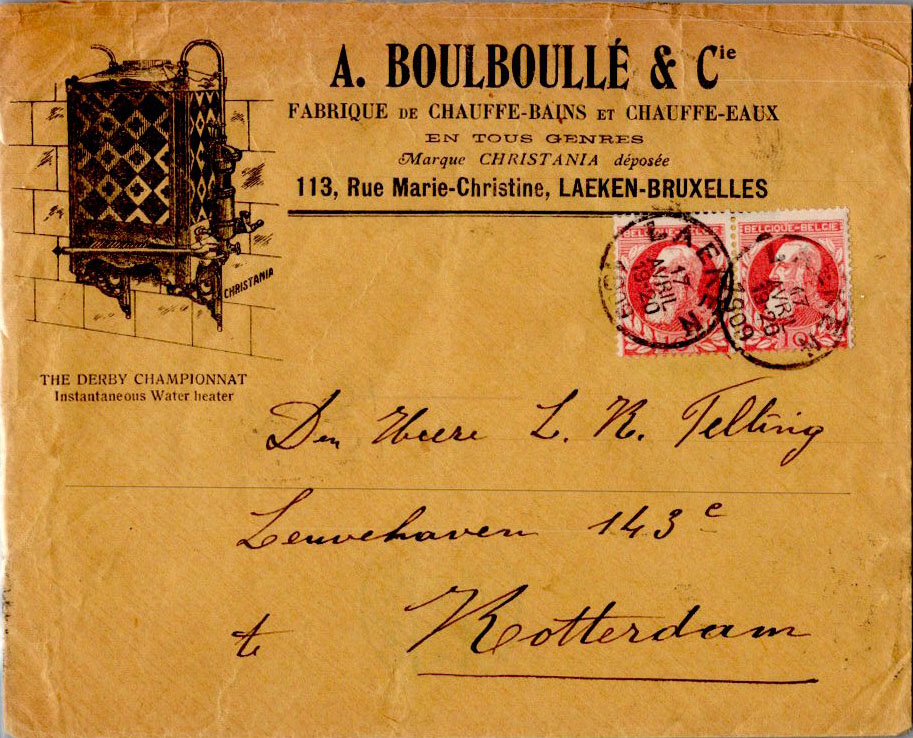 A. BOULBOULLÉ & Cie
FABRIQUE DE CHAUFFE-BAINS ET CHAUFFE-EAUX
EN TOUS GENRES
Marque CHRISTANIA déposée
113, Rue Marie-Christine, LAEKEN-BRUXELLES
CHRISTANIA
THE DERBY CHAMPIONNAT
Instantaneous Water heater
BELGIQUE-BELGIE
BELGIQUE-BELGIE
LAEKEN
17
AVRIL
1909
17
AVRIL
1909
10
Den Heere L. K. Telting
Leuvehaven 143c
te Rotterdam